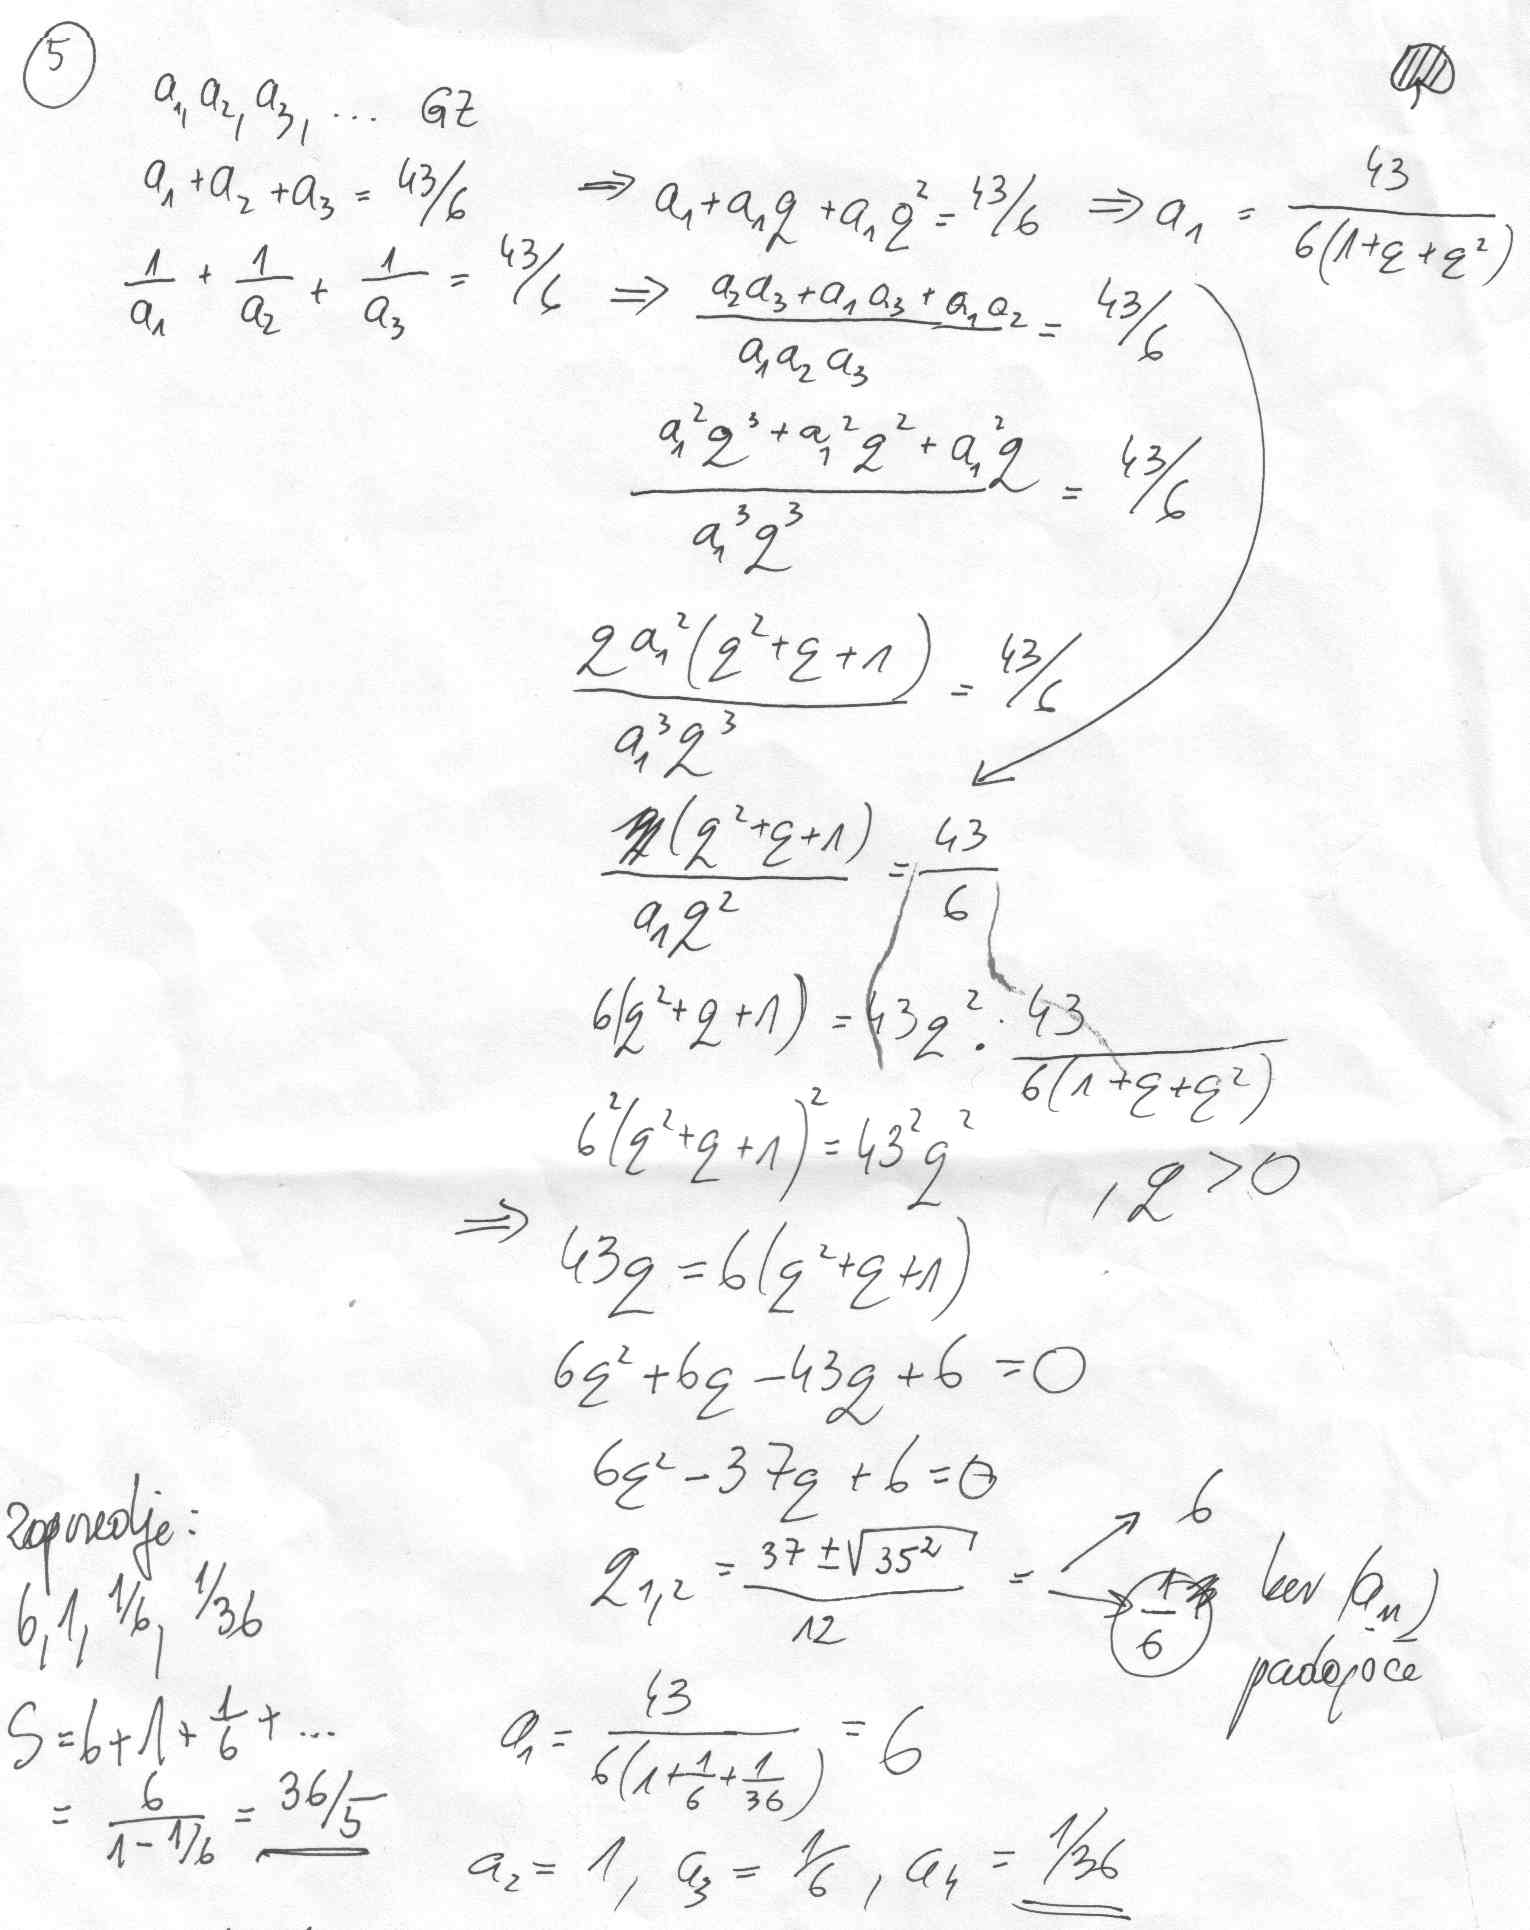 5
a₁, a₂, a₃, ... GZ
a₁ + a₂ + a₃ = 43/6 ⇒ a₁ + a₁q + a₁q² = 43/6 ⇒ a₁ = 43 / 6(1+q+q²)
1/a₁ + 1/a₂ + 1/a₃ = 43/6 ⇒ (a₂a₃ + a₁a₃ + a₁a₂) / a₁a₂a₃ = 43/6
(a₁²q³ + a₁²q² + a₁²q) / a₁³q³ = 43/6
qa₁²(q²+q+1) / a₁³q³ = 43/6
(q²+q+1) / a₁q² = 43/6
6(q²+q+1) = 43q² · 43 / 6(1+q+q²)
6²(q²+q+1)² = 43²q² , q > 0
⇒ 43q = 6(q²+q+1)
6q² + 6q − 43q + 6 = 0
6q² − 37q + 6 = 0
q₁,₂ = (37 ± √35²) / 12 = 6
1/6 ker (aₙ) padajoče
a₁ = 43 / 6(1 + 1/6 + 1/36) = 6
a₂ = 1, a₃ = 1/6, a₄ = 1/36
zaporedje:
6, 1, 1/6, 1/36
S = 6 + 1 + 1/6 + ...
= 6 / (1 − 1/6) = 36/5